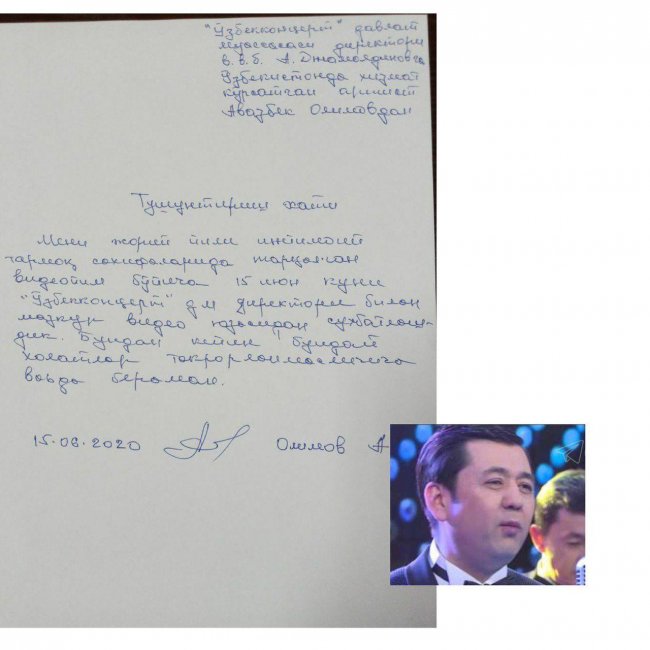 "Ўзбекконцерт" давлат
муассасаси директори
в.в.б. А. Джамолдиновга
Ўзбекистонда хизмат
кўрсатган артист
Авазбек Олимовдан
Тушунтириш хати
Мени жорий йили ижтимоий
тармоқ сахифаларида тарқалган
видеойим бўйича 15 июн куни
"Ўзбекконцерт" дм директори билан
мазкур видео юзасидан сухбатлаш-
дик. Бундан кейин бундай
холатлар такрорланмаслигига
ваъда бераман.
15.06.2020 Олимов А